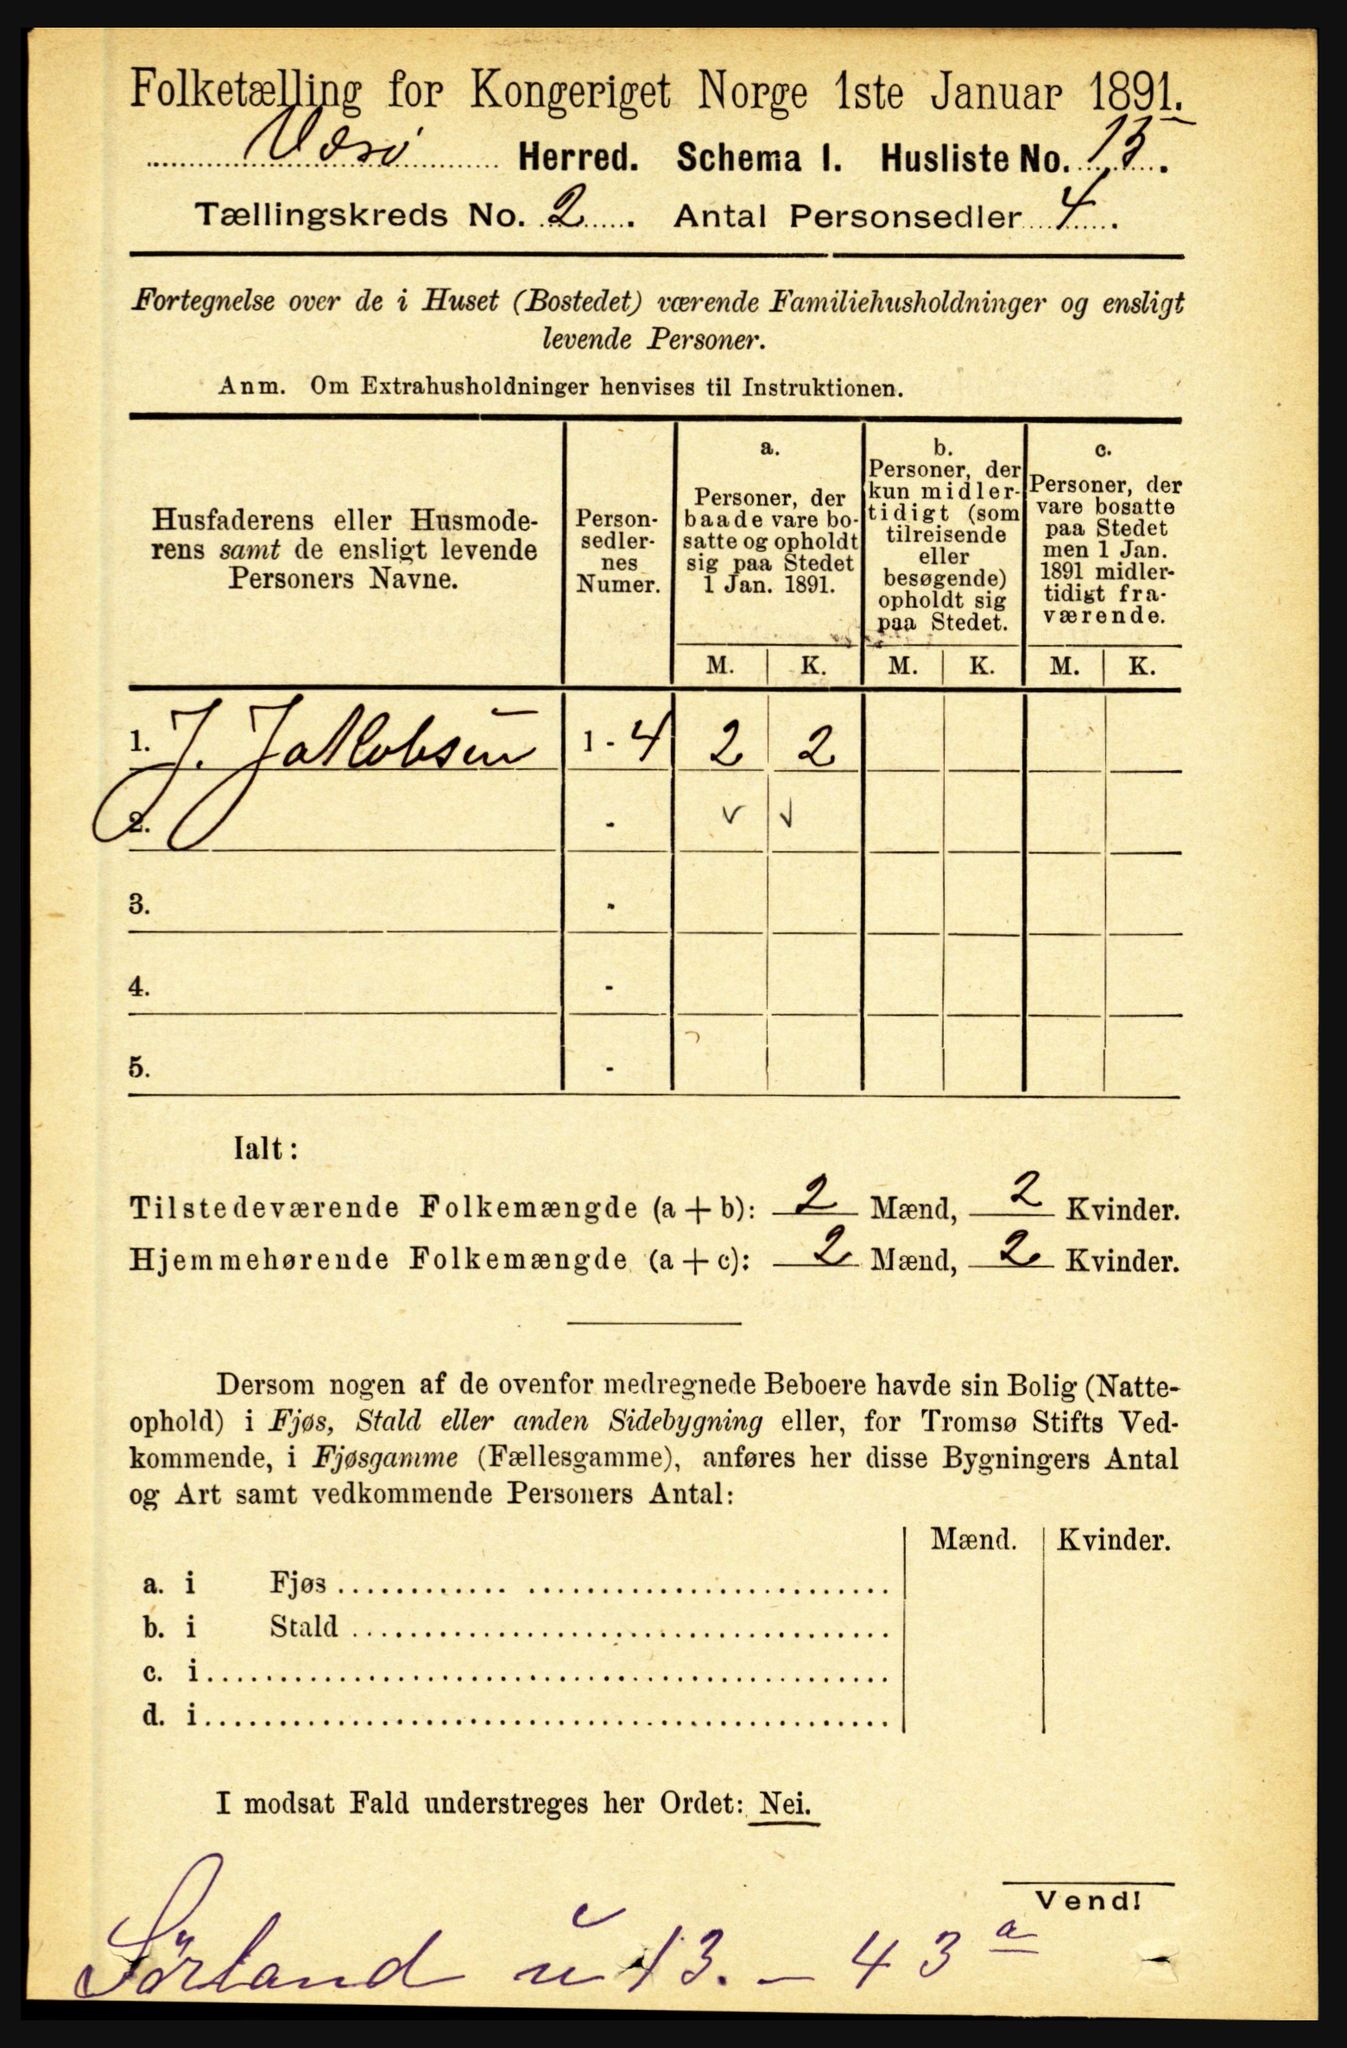 Folketælling for Kongeriget Norge 1ste Januar 1891.
Værø Herred. Schema I. Husliste No. 15.
Tællingskreds No. 2. Antal Personsedler 4.
Fortegnelse over de i Huset (Bostedet) værende Familiehusholdninger og ensligt
levende Personer.
Anm. Om Extrahusholdninger henvises til Instruktionen.
Husfaderens eller Husmode-
rens samt de ensligt levende
Personers Navne.
Person-
sedler-
nes
Numer.
a.
Personer, der
baade vare bo-
satte og opholdt
sig paa Stedet
1 Jan. 1891.
b.
Personer, der
kun midler-
tidigt (som
tilreisende
eller
besøgende)
opholdt sig
paa Stedet.
c.
Personer, der
vare bosatte
paa Stedet
men 1 Jan.
1891 midler-
tidigt fra-
værende.
M. K. M. K. M. K.
1. J. Jakobsen 1 - 4 2 2
2. -
3. -
4. -
5. -
Ialt:
Tilstedeværende Folkemængde (a + b): 2 Mænd, 2 Kvinder.
Hjemmehørende Folkemængde (a + c): 2 Mænd, 2 Kvinder.
Dersom nogen af de ovenfor medregnede Beboere havde sin Bolig (Natte-
ophold) i Fjøs, Stald eller anden Sidebygning eller, for Tromsø Stifts Ved-
kommende, i Fjøsgamme (Fællesgamme), anføres her disse Bygningers Antal
og Art samt vedkommende Personers Antal:
Mænd. Kvinder.
a. i Fjøs
b. i Stald
c. i
d. i
I modsat Fald understreges her Ordet: Nei.
Vend!
Sörland u 13. - 43 a